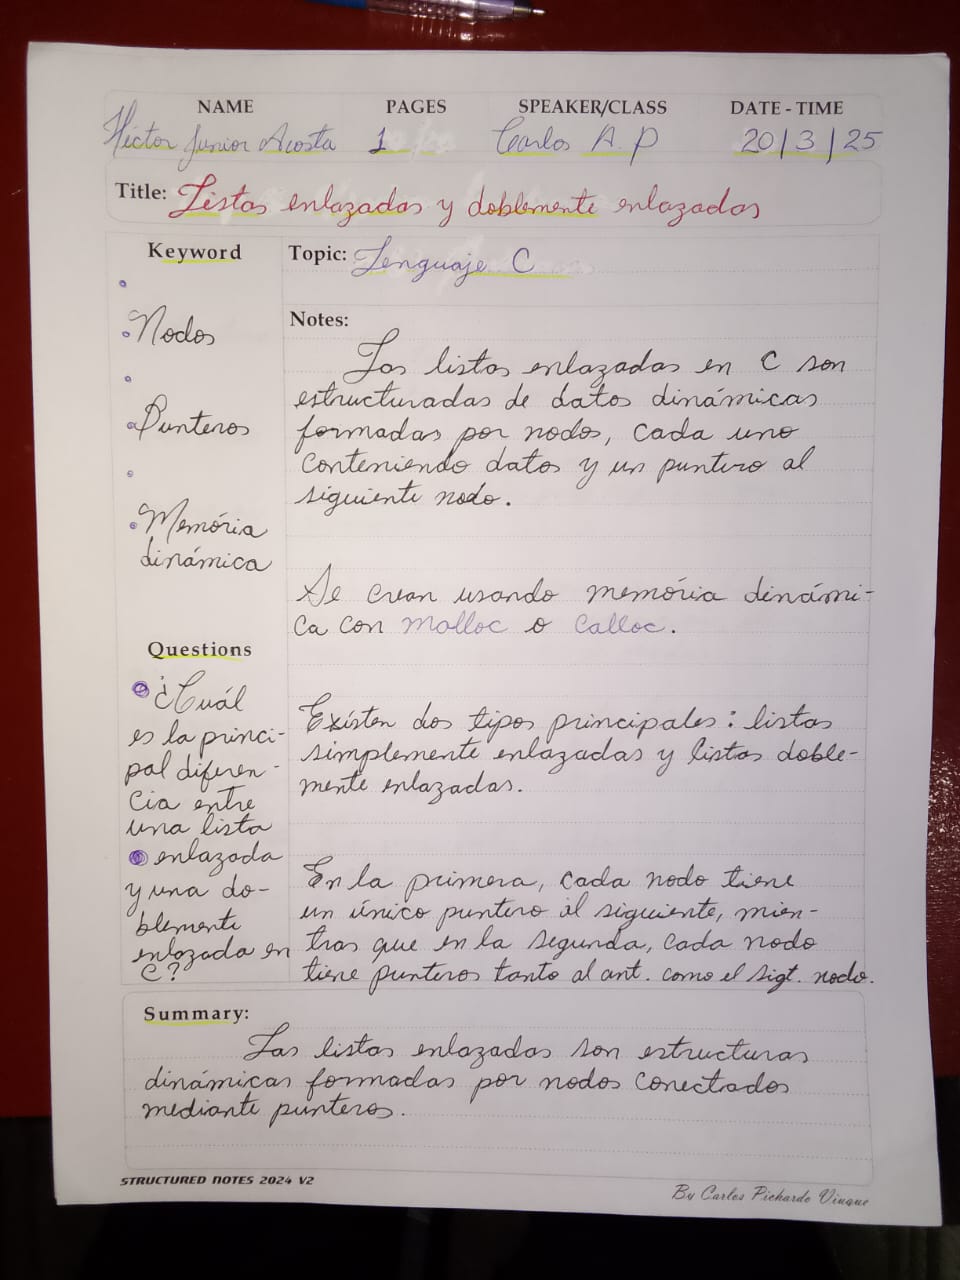 NAME PAGES SPEAKER/CLASS DATE - TIME
Héctor Junior Acosta 1 Carlos A.P 20/3/25
Title: Listas enlazadas y doblemente enlazadas
Keyword
Nodos
Punteros
Memória
dinámica
Questions
¿Cuál
es la princi-
pal diferen-
cia entre
una lista
enlazada
y una do-
blemente
enlazada en
C?
Topic: Lenguaje C
Notes:
Las listas enlazadas en C son
estructuradas de datos dinámicas
formadas por nodos, cada uno
conteniendo datos y un puntero al
siguiente nodo.
Se crean usando memória dinámi-
ca con malloc o calloc.
Existen dos tipos principales: listas
simplemente enlazadas y listas doble-
mente enlazadas.
En la primera, cada nodo tiene
un único puntero al siguiente, mien-
tras que en la segunda, cada nodo
tiene punteros tanto al ant. como el sigt. nodo.
Summary:
Las listas enlazadas son estructuras
dinámicas formadas por nodos conectados
mediante punteros.
STRUCTURED NOTES 2024 V2
By Carlos Pichardo Viuque